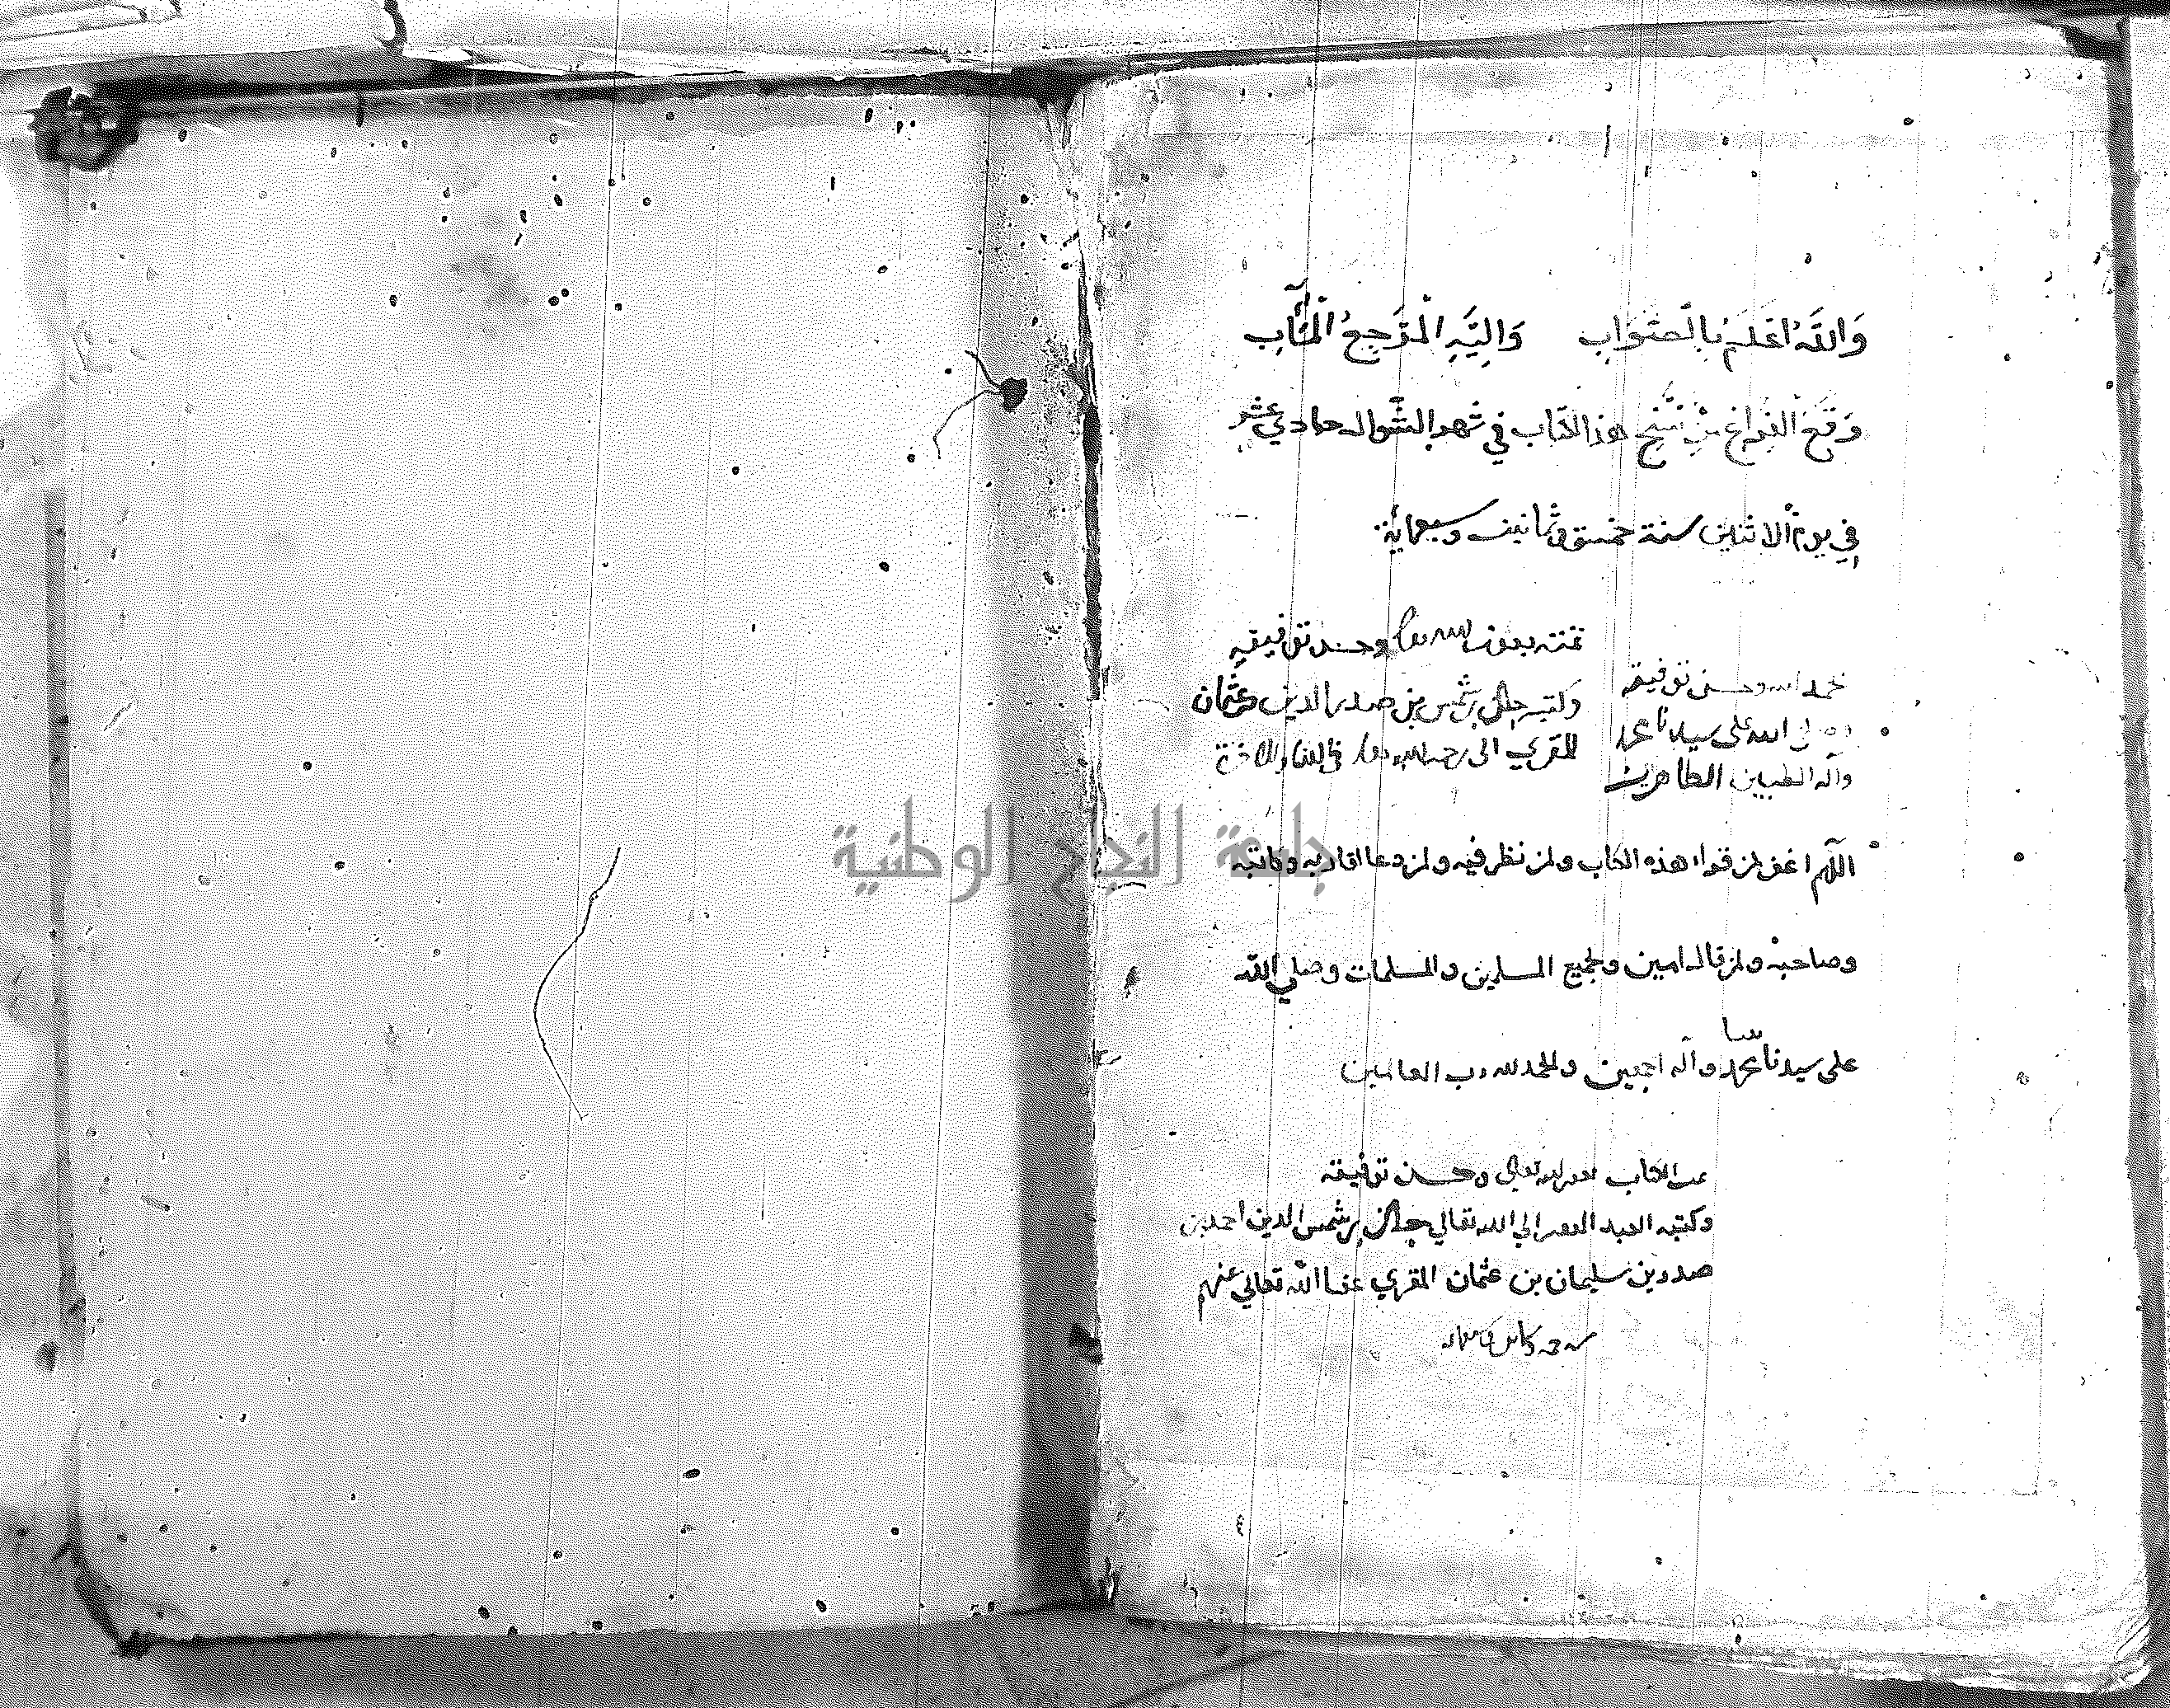 وَاللّٰهُ اَعْلَمُ بِالصَّوَابِ وَاِلَيْهِ الْمَرْجِعُ الْمَآبِ
وَقَعَ الْفَرَاغ مِنْ نسْخِ هذا الكتاب في شهر الشوال حادي عشر
في يوم الاثنين سنة خمس وثمانين وسبعماية
تمته بعون الله تعالى وحسن توفيقه
وكتبه جلال بن شمس بن صدر الدين عثمان
المقري الى رحمة الله تعالى في الدنيا والاخرة
بحمد الله وحسن توفيقه
وصلى الله على سيدنا محمد
وآله الطيبين الطاهرين
اللّهم اغفر لمن قراء هذه الكتاب ولمن نظر فيه ولمن دعا لقاريه وكاتبه
وصاحبه ولمن قال امين ولجميع المسلمين والمسلمات وصلي الله
على سيدنا محمد وآله اجمعين والحمد لله رب العالمين
تمت الكتاب بعون الله تعالي وحسن توفيقه
وكتبه العبد الفقير الي الله تعالي جلال بن شمس الدين احمد بن
صدر بن سليمان بن عثمان المقري عفا الله تعالي عنهم
جامعة النجاح الوطنية